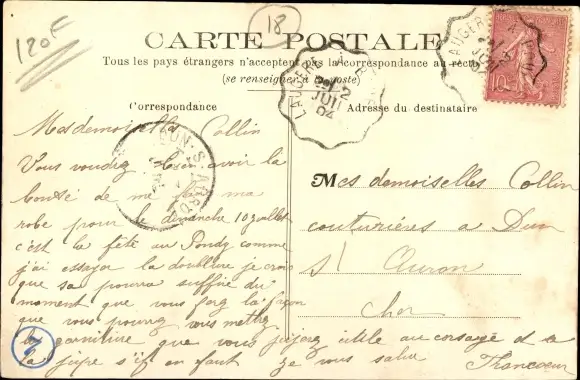 120F
18
CARTE POSTALE
Tous les pays étrangers n'acceptent pas la correspondance au recto
(se renseigner à la poste)
Correspondance
Adresse du destinataire
LAUGERE A
2
JUIL
04
DUN-S-AURON
10c
Mesdemoiselles Collin
Vous voudez bien avoir la
bonté de me ma
robe pour le dimanche 10 juillet
c'est la fête au Pondy comme
j'ai essayer la doublure je crois
que sa pourra suffire du
moment que vous la façon
que vous pourez vous mettrez
la garniture que vous jugerez utile au corsage et a
la jupe s'il en faut je vous salue Francoeur
Mes demoiselles Collin
couturières a Dun
s/ Auron
Cher